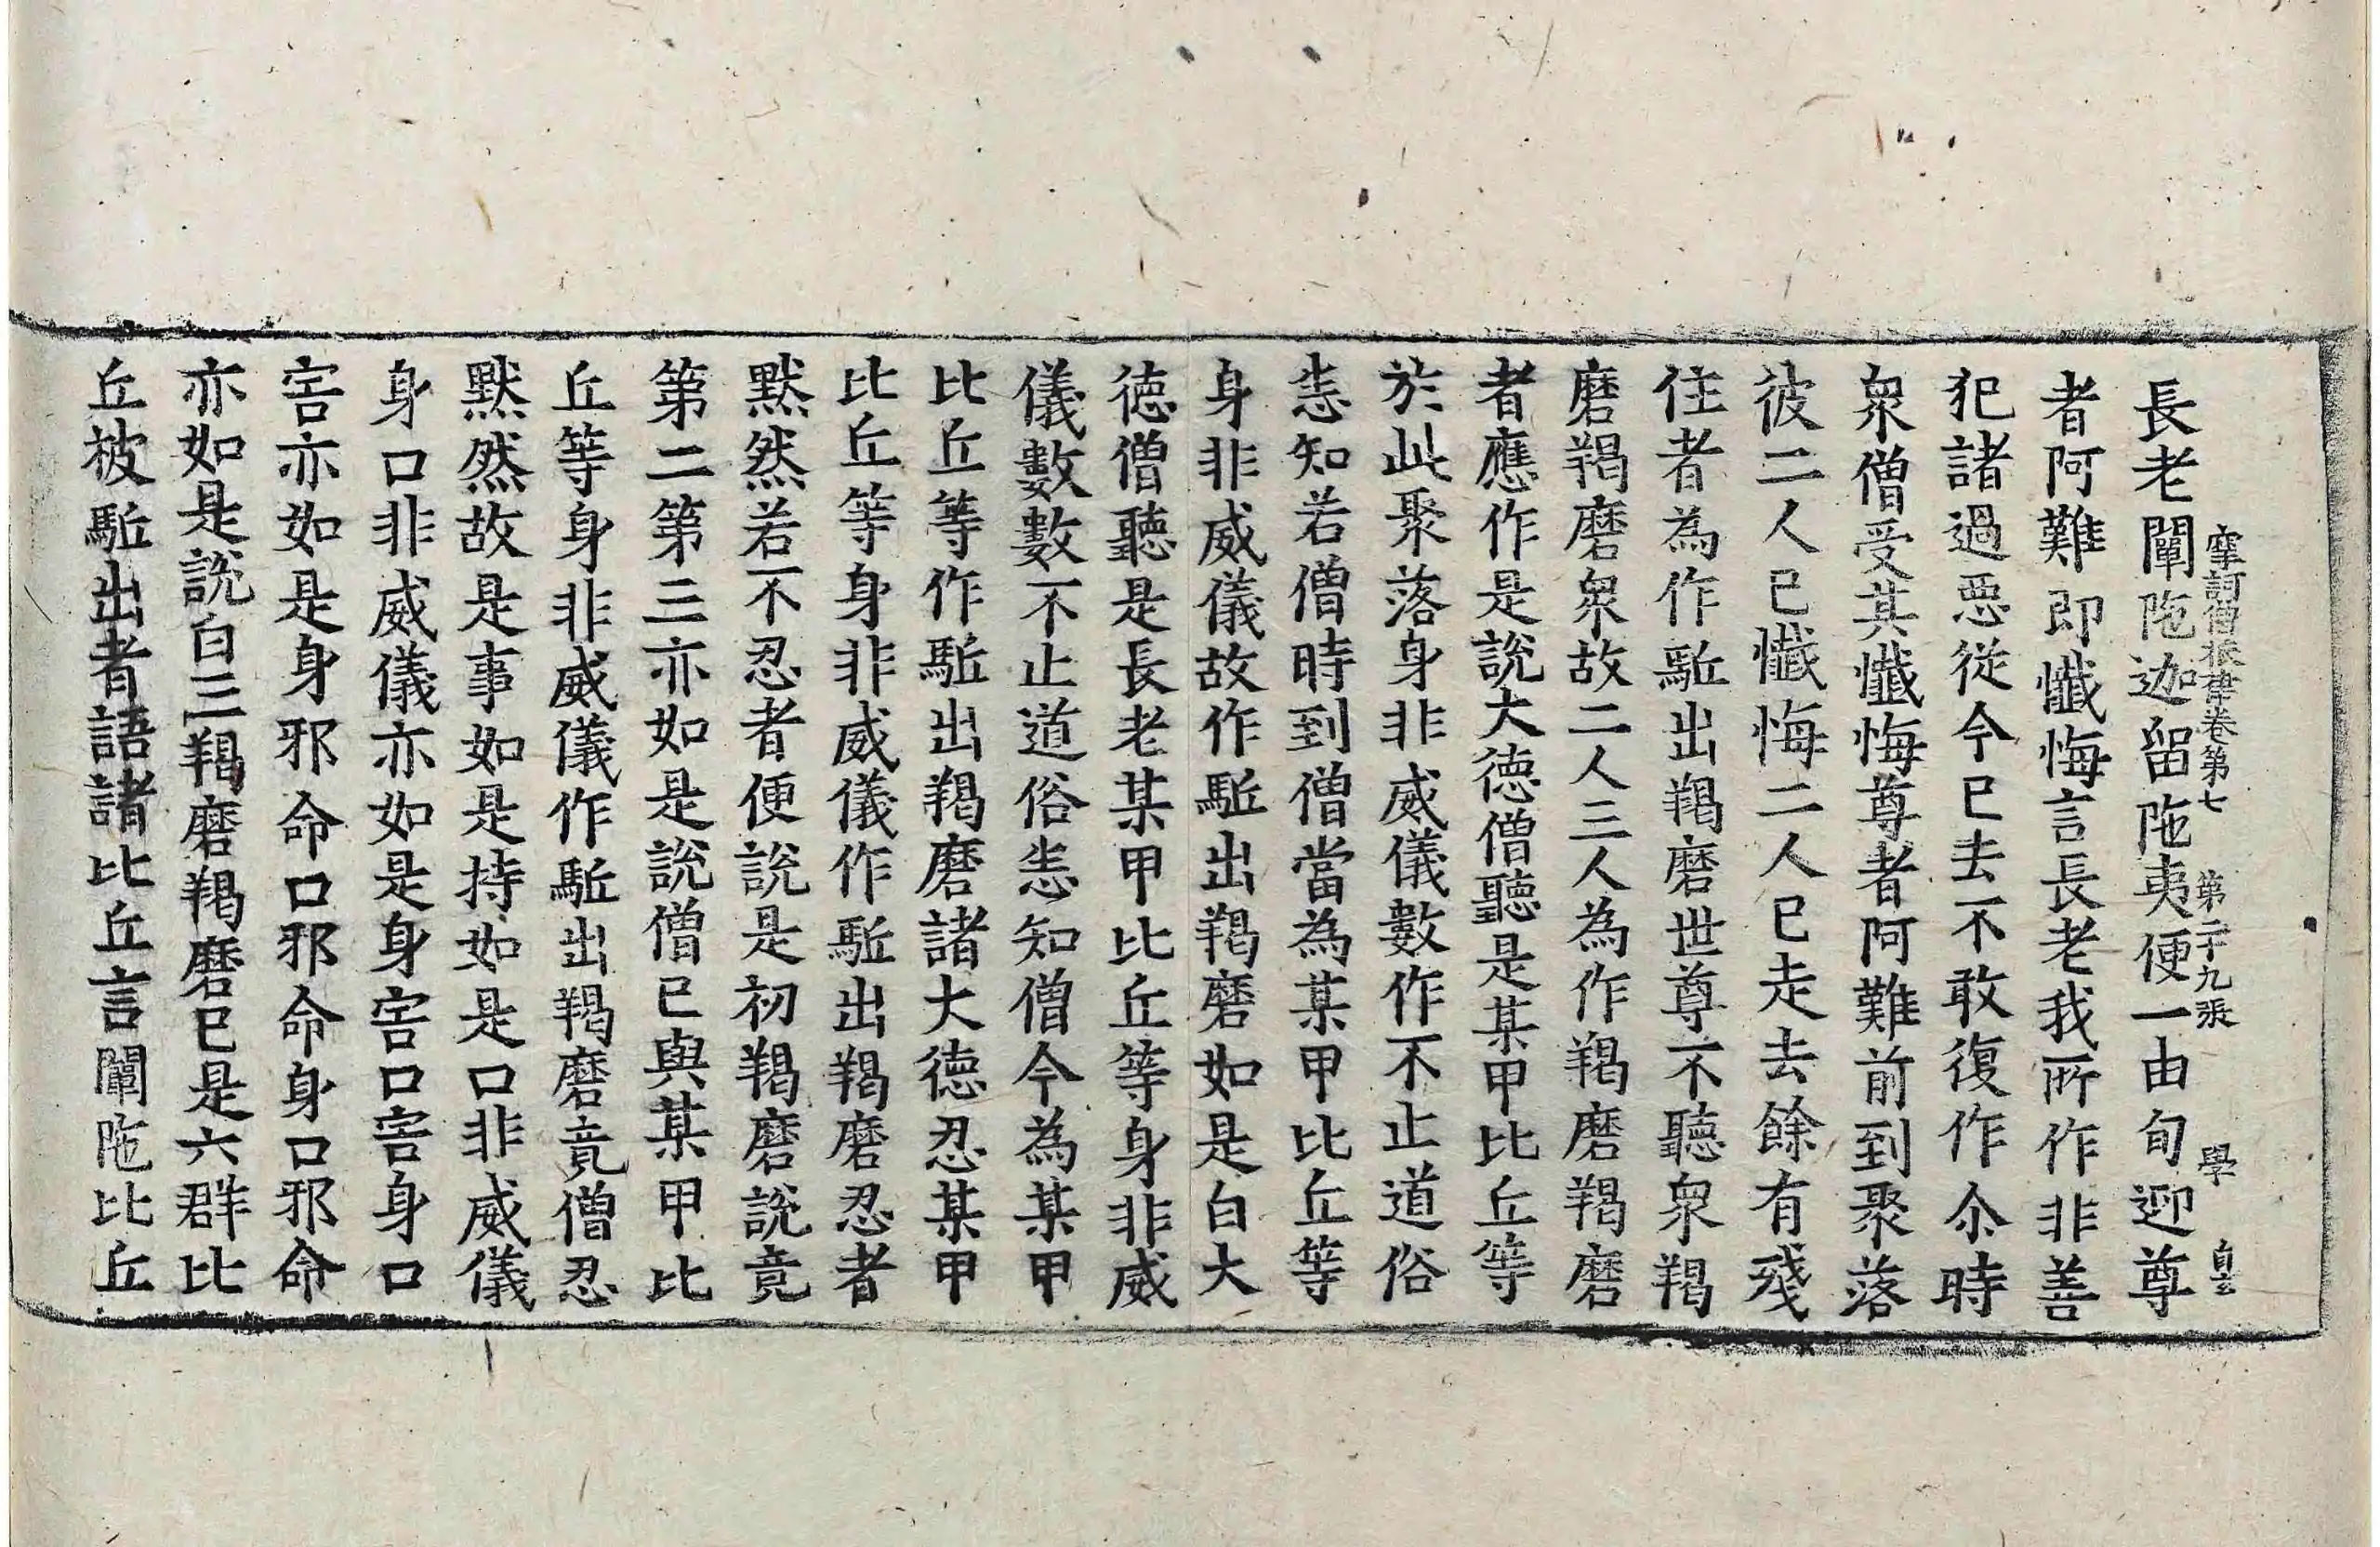 摩訶僧祇律卷第七 第二十九張 學 自玄
長老闡陁迦留陁夷便一由旬迎尊
者阿難即懺悔言長老我所作非善
犯諸過惡從今已去不敢復作尒時
衆僧受其懺悔尊者阿難前到聚落
彼二人已懺悔二人已走去餘有殘
住者為作駈出羯磨世尊不聽衆羯
磨羯磨衆故二人三人為作羯磨羯磨
者應作是說大德僧聽是某甲比丘等
於此聚落身非威儀數作不止道俗
悉知若僧時到僧當為某甲比丘等
身非威儀故作駈出羯磨如是白大
德僧聽是長老某甲比丘等身非威
儀數數不止道俗悉知僧今為某甲
比丘等作駈出羯磨諸大德忍某甲
比丘等身非威儀作駈出羯磨忍者
默然若不忍者便說是初羯磨說竟
第二第三亦如是說僧已與某甲比
丘等身非威儀作駈出羯磨竟僧忍
默然故是事如是持如是口非威儀
身口非威儀亦如是身害口害身口
害亦如是身邪命口邪命身口邪命
亦如是說白三羯磨羯磨已是六群比
丘被駈出者語諸比丘言闡陁比丘